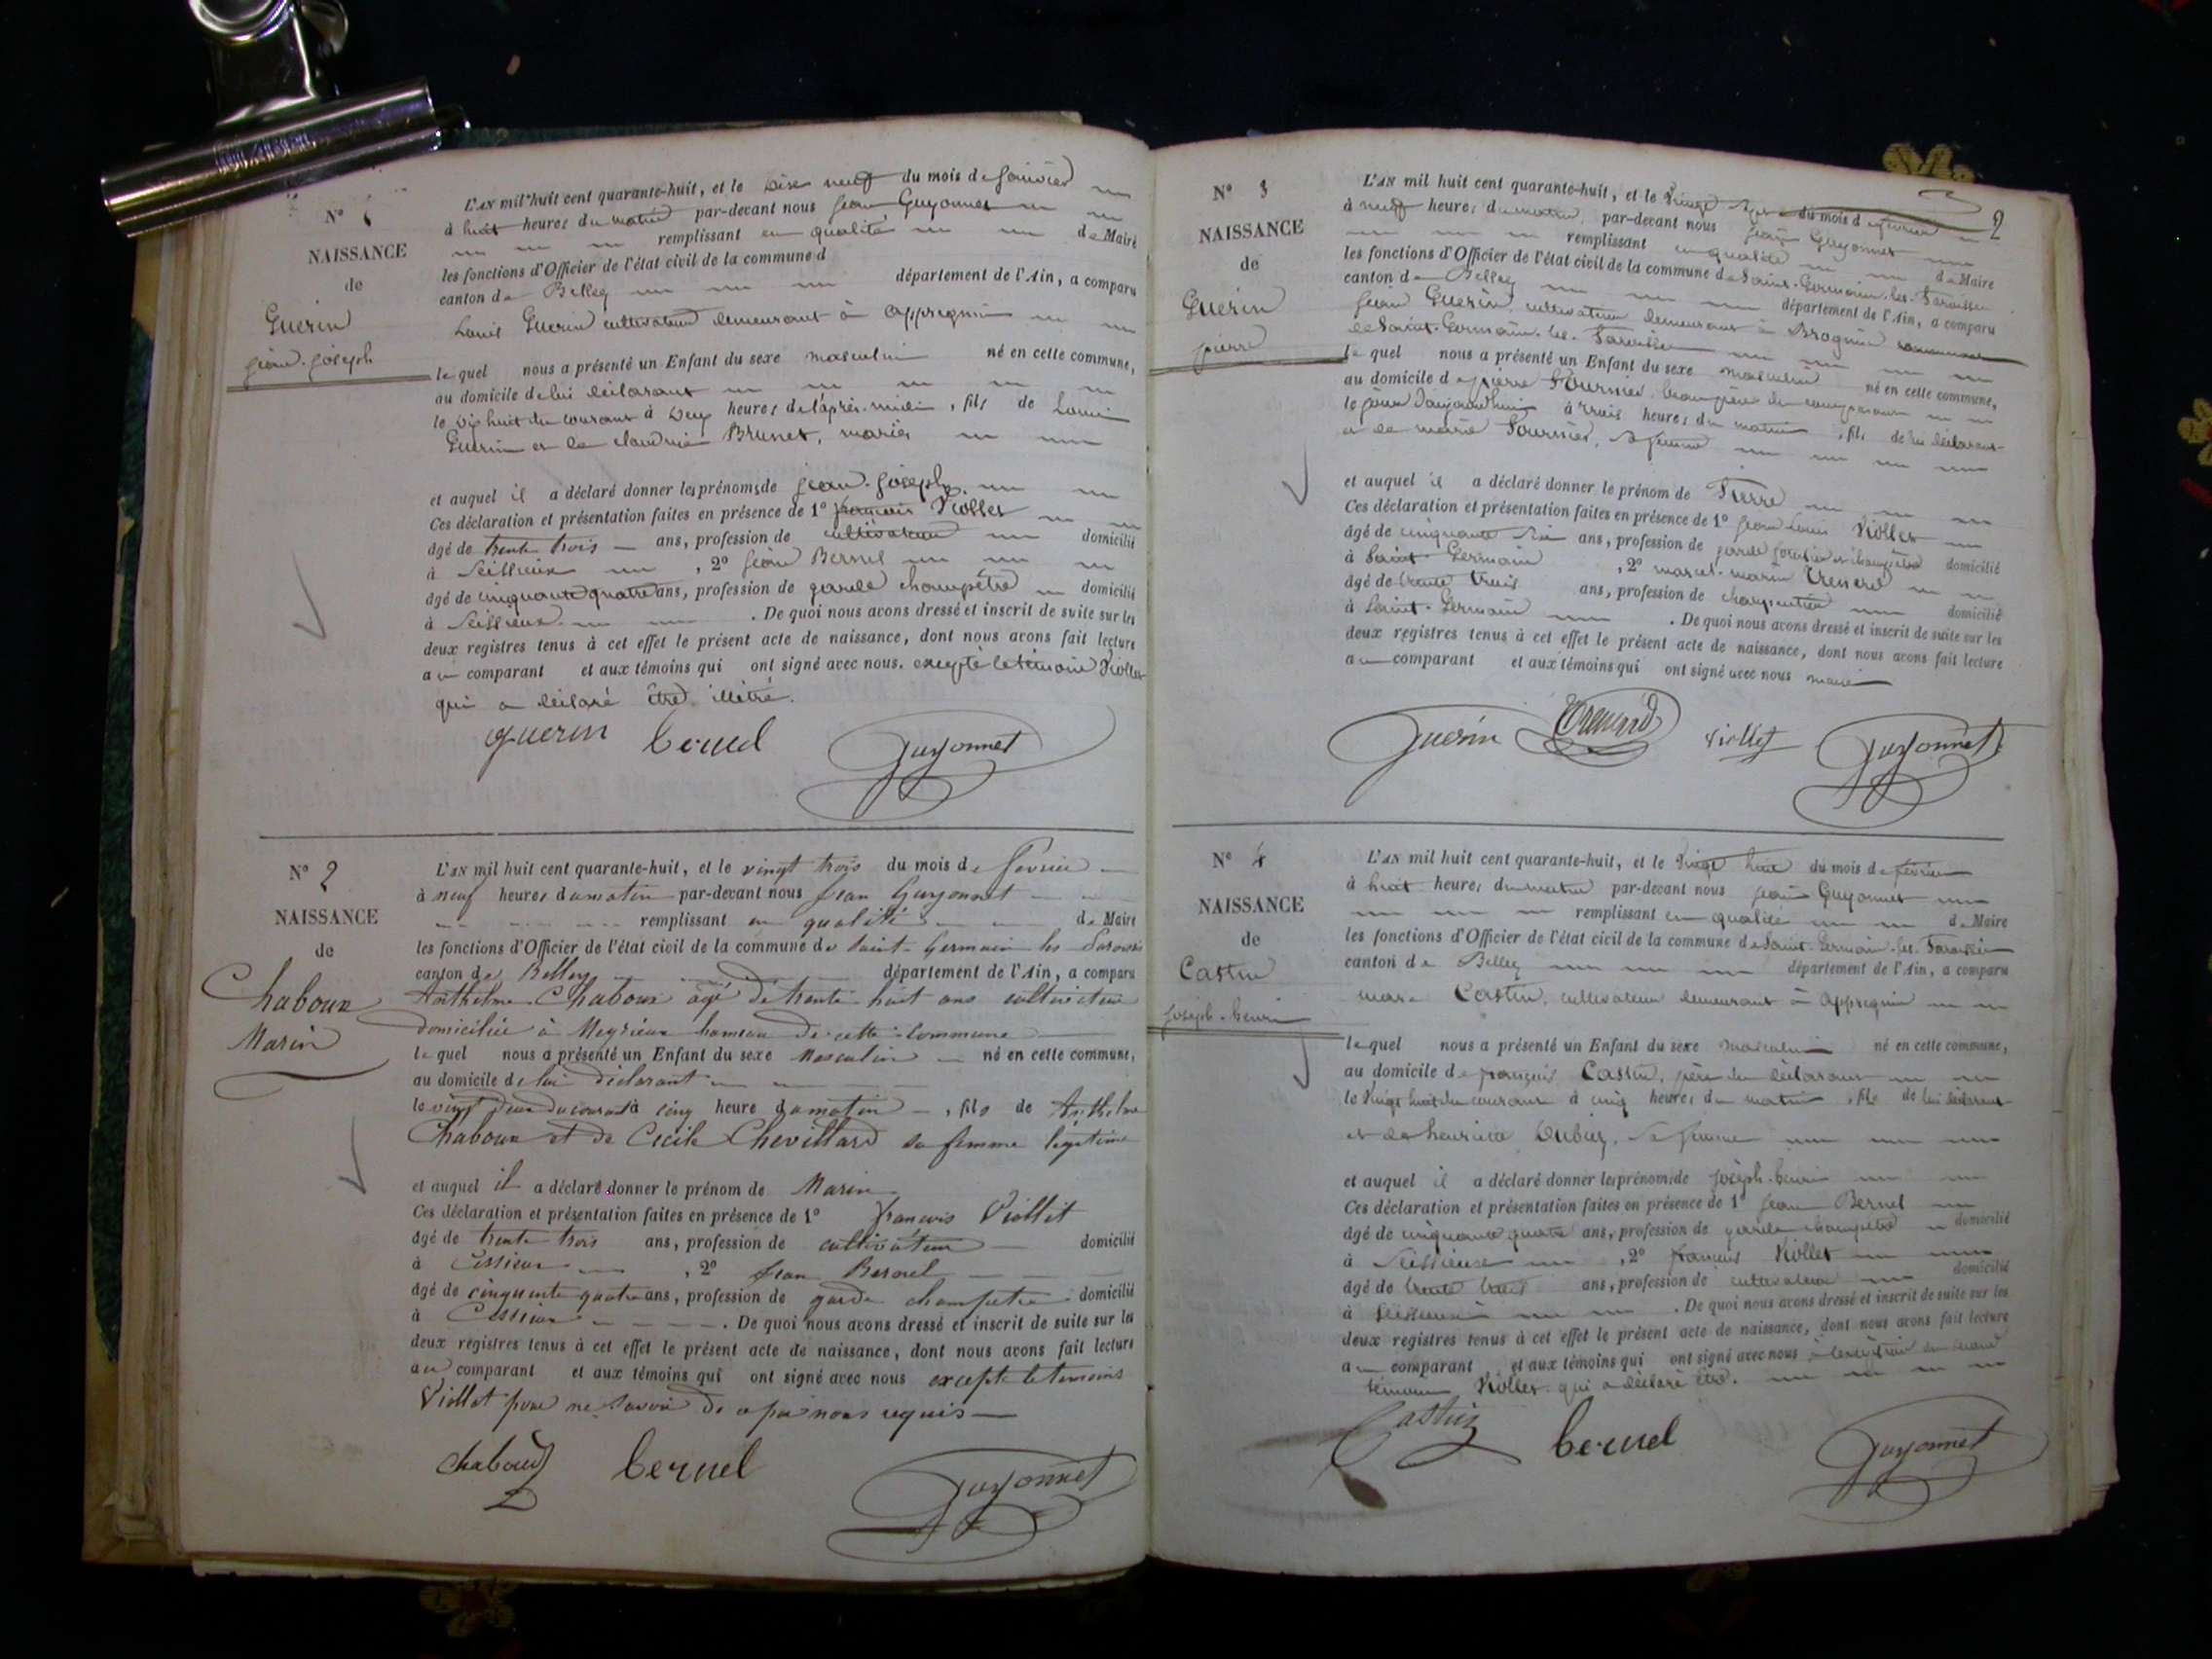 N° 1
NAISSANCE
de
Guerin
jean-joseph
L'AN mil huit cent quarante-huit, et le dix neuf du mois de janvier
à huit heures du matin par-devant nous jean Guyonnet
remplissant en qualité de Maire
les fonctions d'Officier de l'état civil de la commune d
canton de Belley département de l'Ain, a comparu
Louis Guerin cultivateur demeurant à appregnin
lequel nous a présenté un Enfant du sexe masculin né en cette commune,
au domicile de lui déclarant
le dix huit du courant à deux heures de l'après-midi, fils de Louis
Guerin et de claudine Brunet, mariés
et auquel il a déclaré donner les prénoms de jean-joseph
Ces déclaration et présentation faites en présence de 1° françois Viollet
âgé de trente trois ans, profession de cultivateur domicilié
à Seissieux , 2° jean Bernel
âgé de cinquante quatre ans, profession de garde champêtre domicilié
à Seissieux . De quoi nous avons dressé et inscrit de suite sur les
deux registres tenus à cet effet le présent acte de naissance, dont nous avons fait lecture
au comparant et aux témoins qui ont signé avec nous. excepté le témoin Viollet
qui a déclaré être illétré.
guerin bernel Guyonnet
N° 2
NAISSANCE
de
Chaboux
Marin
L'AN mil huit cent quarante-huit, et le vingt trois du mois de fevrier
à neuf heures du matin par-devant nous Jean Guyonnet
remplissant en qualité de Maire
les fonctions d'Officier de l'état civil de la commune de Saint-Germain les Paroisses
canton de Belley département de l'Ain, a comparu
Anthelme Chaboux âgé de trente huit ans cultivateur
domicilié à Meyrieux hameau de cette commune
lequel nous a présenté un Enfant du sexe Masculin né en cette commune,
au domicile de lui déclarant
le vingt deux du courant à cinq heure du matin , fils de Anthelme
Chaboux et de Cécile Chevillard sa femme légitime
et auquel il a déclaré donner le prénom de Marin
Ces déclaration et présentation faites en présence de 1° françois Viollet
âgé de trente trois ans, profession de cultivateur domicilié
à Cessieux , 2° Jean Bernel
âgé de cinquante quatre ans, profession de garde champetre domicilié
à Cessieux . De quoi nous avons dressé et inscrit de suite sur les
deux registres tenus à cet effet le présent acte de naissance, dont nous avons fait lecture
au comparant et aux témoins qui ont signé avec nous excepté le temoins
Viollet pour ne savoir de ce par nous requis
chaboux bernel Guyonnet
2
N° 3
NAISSANCE
de
Guerin
pierre
L'AN mil huit cent quarante-huit, et le vingt du mois de fevrier
à neuf heures du matin par-devant nous jean Guyonnet
remplissant en qualité de Maire
les fonctions d'Officier de l'état civil de la commune de Saint-Germain-les-Paroisses
canton de Belley département de l'Ain, a comparu
jean Guerin, cultivateur demeurant à Brognin commune
de Saint-Germain-les-Paroisses
lequel nous a présenté un Enfant du sexe masculin né en cette commune,
au domicile de pierre Fournier, beau père du comparant
le jour d'aujourd'hui à trois heures du matin , fils de lui déclarant
et de marie Fournier, sa femme
et auquel il a déclaré donner le prénom de Pierre
Ces déclaration et présentation faites en présence de 1° jean Louis Viollet
âgé de cinquante six ans, profession de garde forestier et champêtre domicilié
à Saint Germain , 2° marcel-marin
âgé de trente trois ans, profession de charpentier domicilié
à Saint-Germain . De quoi nous avons dressé et inscrit de suite sur les
deux registres tenus à cet effet le présent acte de naissance, dont nous avons fait lecture
au comparant et aux témoins qui ont signé avec nous maire
Guerin viollet Guyonnet
N° 4
NAISSANCE
de
Castin
joseph-henri
L'AN mil huit cent quarante-huit, et le vingt huit du mois de février
à huit heures du matin par-devant nous jean Guyonnet
remplissant en qualité de Maire
les fonctions d'Officier de l'état civil de la commune de Saint-Germain-les-Paroisses
canton de Belley département de l'Ain, a comparu
marc Castin, cultivateur demeurant à appregnin
lequel nous a présenté un Enfant du sexe masculin né en cette commune,
au domicile de françois Castin, père du déclarant
le vingt huit du courant à cinq heures du matin , fils de lui déclarant
et de henriette Dubuy, sa femme
et auquel il a déclaré donner les prénoms de joseph-henri
Ces déclaration et présentation faites en présence de 1° jean Bernel
âgé de cinquante quatre ans, profession de garde champêtre domicilié
à Seissieux , 2° françois Viollet
âgé de trente trois ans, profession de cultivateur domicilié
à Seissieux . De quoi nous avons dressé et inscrit de suite sur les
deux registres tenus à cet effet le présent acte de naissance, dont nous avons fait lecture
au comparant et aux témoins qui ont signé avec nous
témoin Viollet qui a déclaré être.
Castin bernel Guyonnet